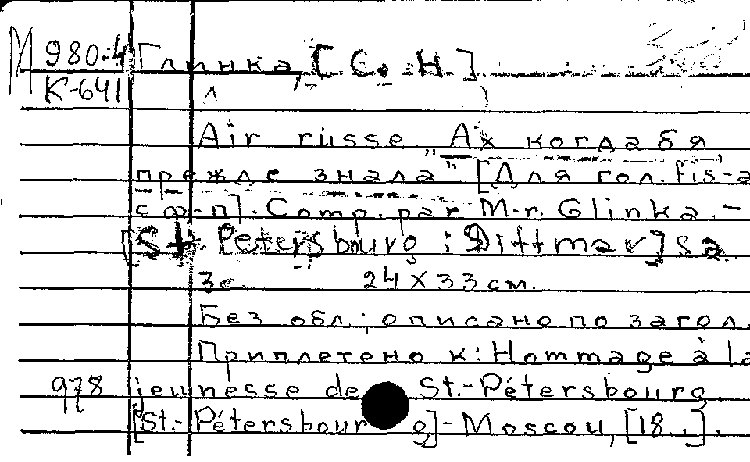 М 980-4 Глинка, [С. Н.]
К-641
Air russe „Ах когда б я
прежде знала“ [Для гол. fis-a
с ф-п]. Comp. par M-r. Glinka. –
[St. Petersbourg : Dittmar] s a.
3 с. 24 × 33 см.
Без обл.; описано по загол.
Приплетено к: Hommage à la
978 jeunesse de St.-Pétersbourg
[St.-Pétersbourg] - Moscou, [18..].